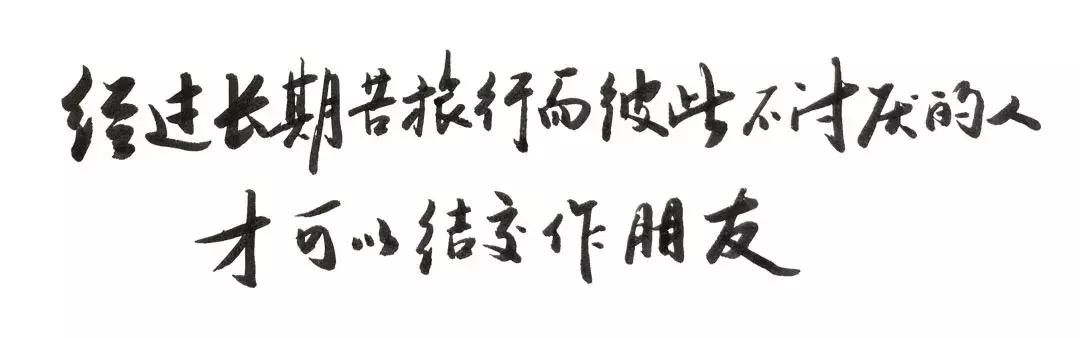 经过长期苦旅行而彼此不讨厌的人
才可以结交作朋友